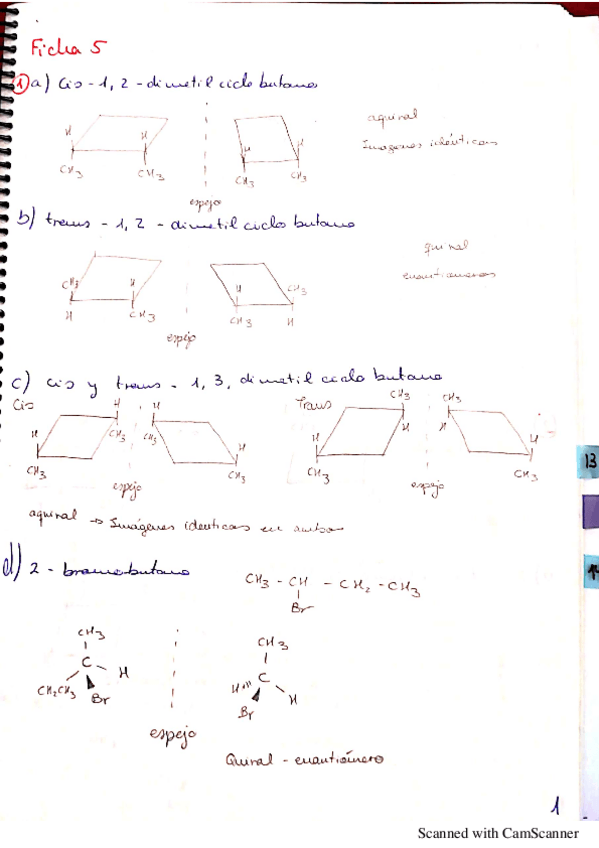 Ficha 5
1 a) Cis - 1, 2 - dimetil ciclo butano
aquiral
Imágenes idénticas
H H
CH3 CH3
H H
CH3 CH3
espejo
b) trans - 1, 2 - dimetil ciclo butano
quiral
enantiomeros
CH3 H
H CH3
H CH3
CH3 H
espejo
c) cis y trans - 1, 3, dimetil ciclo butano
Cis
H H
H CH3 CH3 H
CH3 CH3
espejo
Trans
CH3 CH3
H H H H
CH3 CH3
espejo
aquiral → Imágenes identicas en ambos
d) 2 - bromobutano
CH3 - CH - CH2 - CH3
Br
CH3
C
H
CH2CH3
Br
espejo
CH3
C
H
Br
H
Quiral - enantiómero
13
1
Scanned with CamScanner